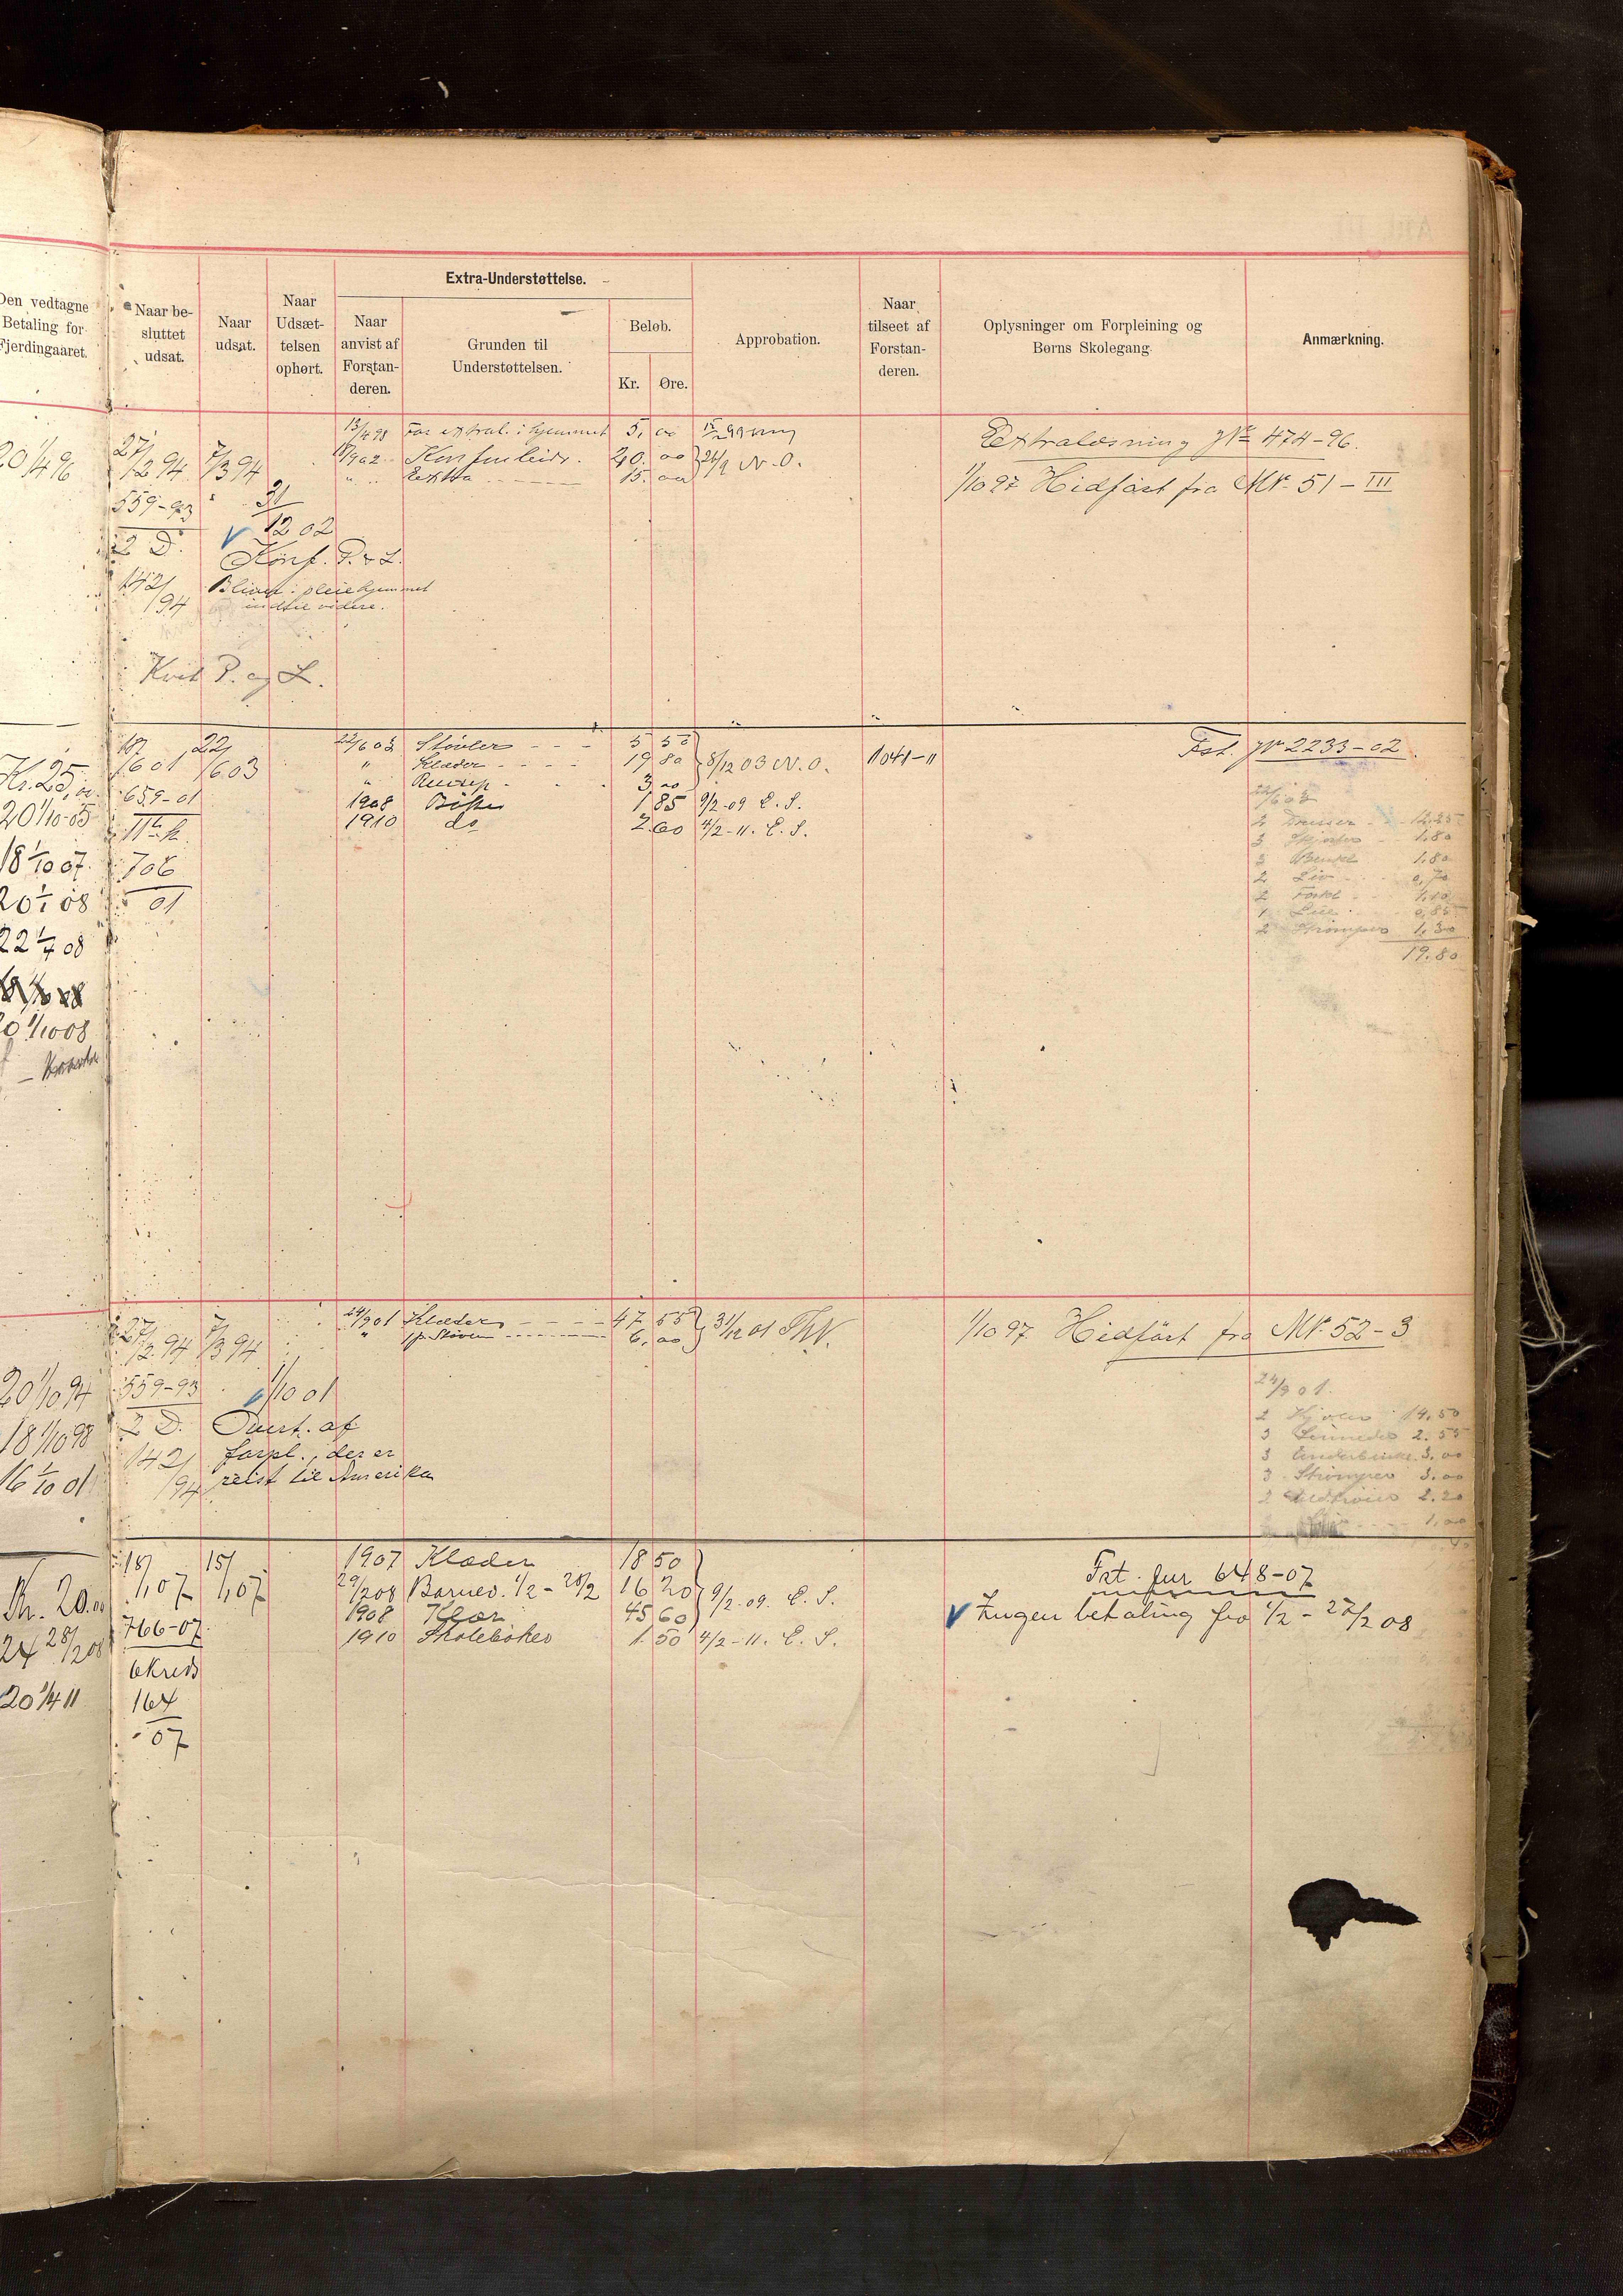 Den vedtagne
Betaling for
Fjerdingaaret.
Naar be-
sluttet
udsat.
Naar
udsat.
Naar
Udsæt-
telsen
ophørt.
Extra-Understøttelse.
Naar
anvist af
Forstan-
deren.
Grunden til
Understøttelsen.
Beløb.
Kr. Øre.
Approbation.
Naar
tilseet af
Forstan-
deren.
Oplysninger om Forpleining og
Børns Skolegang.
Anmærkning.
20 1/4 96
27/12 94 7/3 94
559-93
2 D.
142/94
31/12 02
Konf. P. & L.
Bliver i pleiehjemmet
indtil videre.
Kvit P. og L.
13/4 98 For extral. i hjemmet 5. 00
1/9 02 40. 00 24/9 N. O.
" Extra 15. 00
Extralæsning JNr 474-96.
1/10 97 Hidført fra Mk. 51-III
Kr. 25,00
20 1/10-05
18 1/10 07.
20 1/1 08
22 1/4 08
20 1/10 08
18/6 01 22/6 03
659-01
706
01
22/6 03 Støvler 5 50
" Klæder 19 80 8/12 03 N. O.
" 3 00
1908 Bøker 1 85 9/2-09 E. S.
1910 do 2.60 4/2-11. E. S.
1041-11
Fst. JNr 2233-02
22/6 03
2 12.25
3 Skjorter 1.80
3 1.80
2 Liv 0,70
2 Forkl 1,10
1 0,85
2 Strømper 1,30
19.80
20 1/10 94
18 1/10 98
16 1/10 01
27/12 94 7/3 94
559-93
2 D.
142/94
1/10 01
Overt. af
forpl., der er
reist til Amerika
24/9 01 Klæder 47 55
" 1 p. Støvler 6, 00
31/12 01 ThN.
1/10 97 Hidført fra Mk. 52-3
24/9 01.
2 Kjoler 14,50
3 2.55
3 Underbenkl. 3,00
3 Strømper 3.00
2 2.20
1,00
Kr. 20.00
24 28/2 08
20 1/4 11
18/1 07 15/1 07
766-07
6 kreds
164
07
1907 Klæder 18 50
29/2 08 Barnev. 1/2 - 28/2 16 20 9/2.09. E. S.
1908 Klær 45 60
1910 Skolebøker 1.50 4/2-11. E. S.
Fst. Jur 648-07
Ingen betaling fra 1/2 - 28/2 08